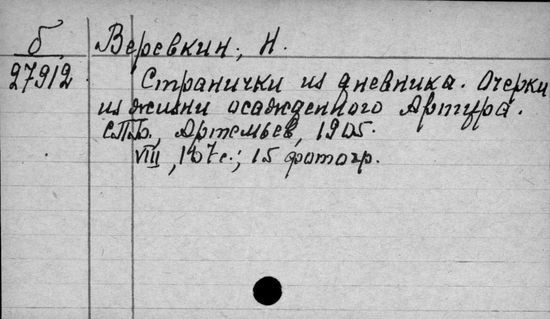 б Веревкин, Н.
27912 Странички из дневника. Очерки
из жизни осажденного Артура.
СПб, Артемьев, 1905.
VIII, 147с.; 15 фотогр.